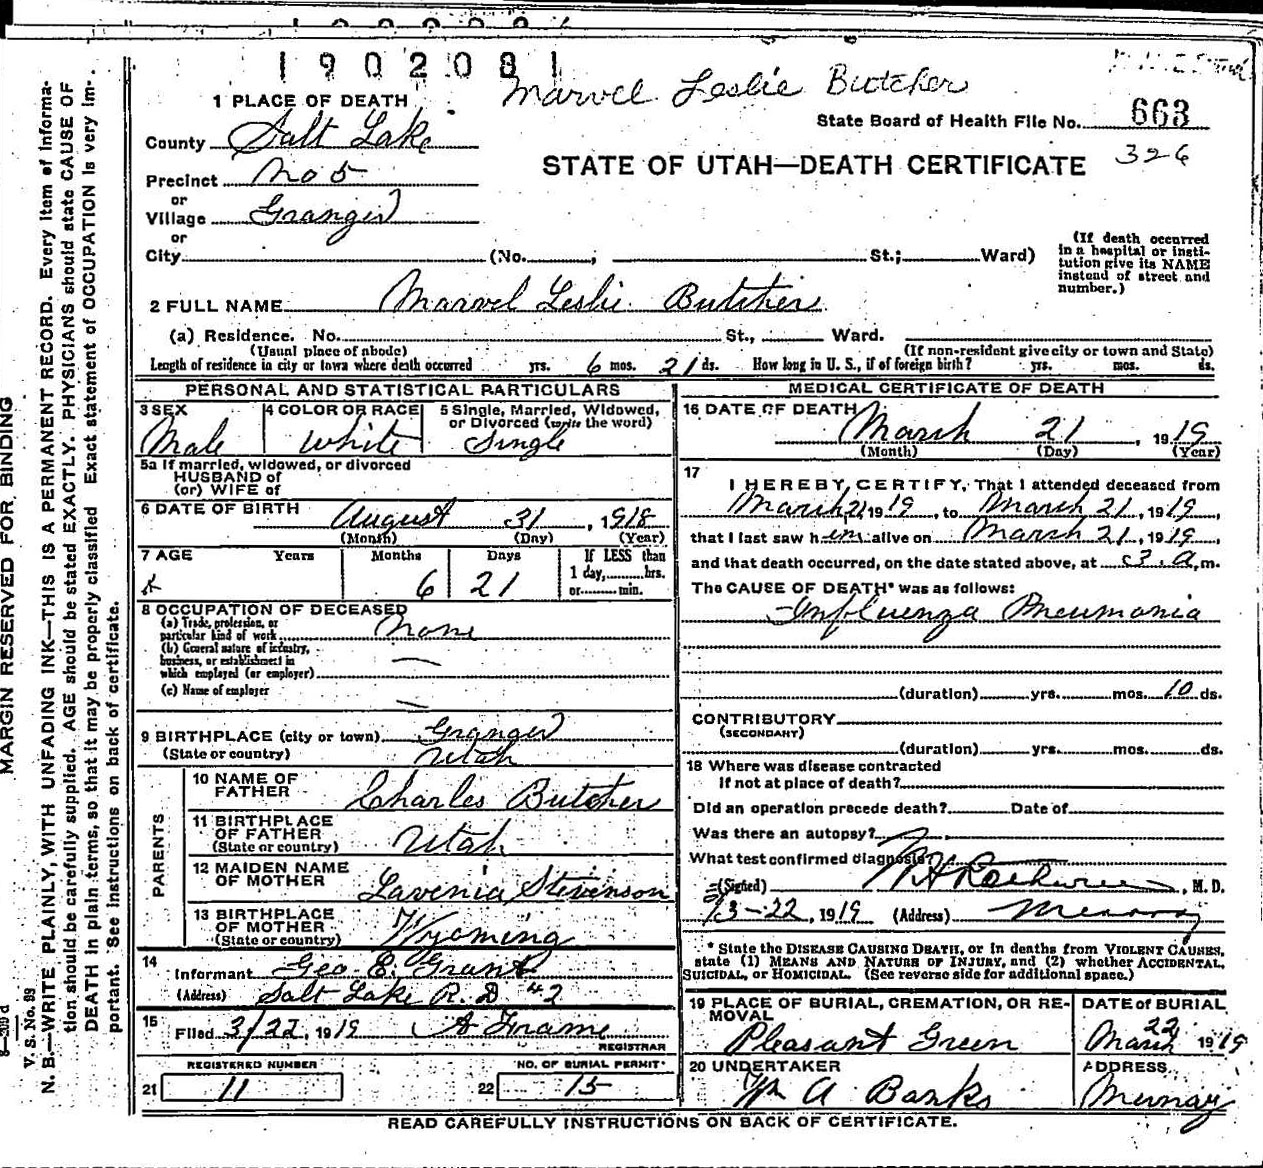 1902081
Marvel Leslie Butcher
1 PLACE OF DEATH
State Board of Health File No. 663
326
County Salt Lake
STATE OF UTAH—DEATH CERTIFICATE
Precinct No 5
or
Village Granger
or
City (No. ; St.; Ward)
(If death occurred in a hospital or institution give its NAME instead of street and number.)
2 FULL NAME Marvel Leslie Butcher
(a) Residence. No. St., Ward.
(Usual place of abode) (If non-resident give city or town and State)
Length of residence in city or town where death occurred yrs. 6 mos. 21 ds. How long in U. S., if of foreign birth? yrs. mos. ds.
PERSONAL AND STATISTICAL PARTICULARS
3 SEX 4 COLOR OR RACE 5 Single, Married, Widowed, or Divorced (write the word)
Male White Single
5a If married, widowed, or divorced
HUSBAND of
(or) WIFE of
6 DATE OF BIRTH August 31, 1918
(Month) (Day) (Year)
7 AGE Years Months Days If LESS than
1 day,........hrs.
6 21 or........min.
8 OCCUPATION OF DECEASED
(a) Trade, profession, or
particular kind of work None
(b) General nature of industry,
business, or establishment in
which employed (or employer) —
(c) Name of employer —
9 BIRTHPLACE (city or town) Granger
(State or country) Utah
PARENTS
10 NAME OF FATHER Charles Butcher
11 BIRTHPLACE OF FATHER (State or country) Utah
12 MAIDEN NAME OF MOTHER Lavenia Stevenson
13 BIRTHPLACE OF MOTHER (State or country) Wyoming
14
Informant Geo E. Grant
(Address) Salt Lake R. D #2
15
Filed 3/22, 1919
REGISTRAR
REGISTERED NUMBER NO. OF BURIAL PERMIT
21 11 22 15
MEDICAL CERTIFICATE OF DEATH
16 DATE OF DEATH
March 21, 1919
(Month) (Day) (Year)
17
I HEREBY CERTIFY, That I attended deceased from
March 21 1919, to March 21, 1919,
that I last saw him alive on March 21, 1919,
and that death occurred, on the date stated above, at 3. a. m.
The CAUSE OF DEATH* was as follows:
Influenza Pneumonia
(duration) yrs. mos. 10 ds.
CONTRIBUTORY
(SECONDARY)
(duration) yrs. mos. ds.
18 Where was disease contracted
if not at place of death?
Did an operation precede death? Date of
Was there an autopsy?
What test confirmed diagnosis?
(Signed) , M. D.
3-22, 1919 (Address) Murray
* State the DISEASE CAUSING DEATH, or in deaths from VIOLENT CAUSES,
state (1) MEANS AND NATURE OF INJURY, and (2) whether ACCIDENTAL,
SUICIDAL, or HOMICIDAL. (See reverse side for additional space.)
19 PLACE OF BURIAL, CREMATION, OR REMOVAL DATE of BURIAL
Pleasant Green March 22 1919
20 UNDERTAKER ADDRESS
Wm A Banks Murray
READ CAREFULLY INSTRUCTIONS ON BACK OF CERTIFICATE.
MARGIN RESERVED FOR BINDING
V. S. No. 99
N. B.—WRITE PLAINLY, WITH UNFADING INK—THIS IS A PERMANENT RECORD. Every item of informa-
tion should be carefully supplied. AGE should be stated EXACTLY. PHYSICIANS should state CAUSE OF
DEATH in plain terms, so that it may be properly classified Exact statement of OCCUPATION is very im-
portant. See instructions on back of certificate.